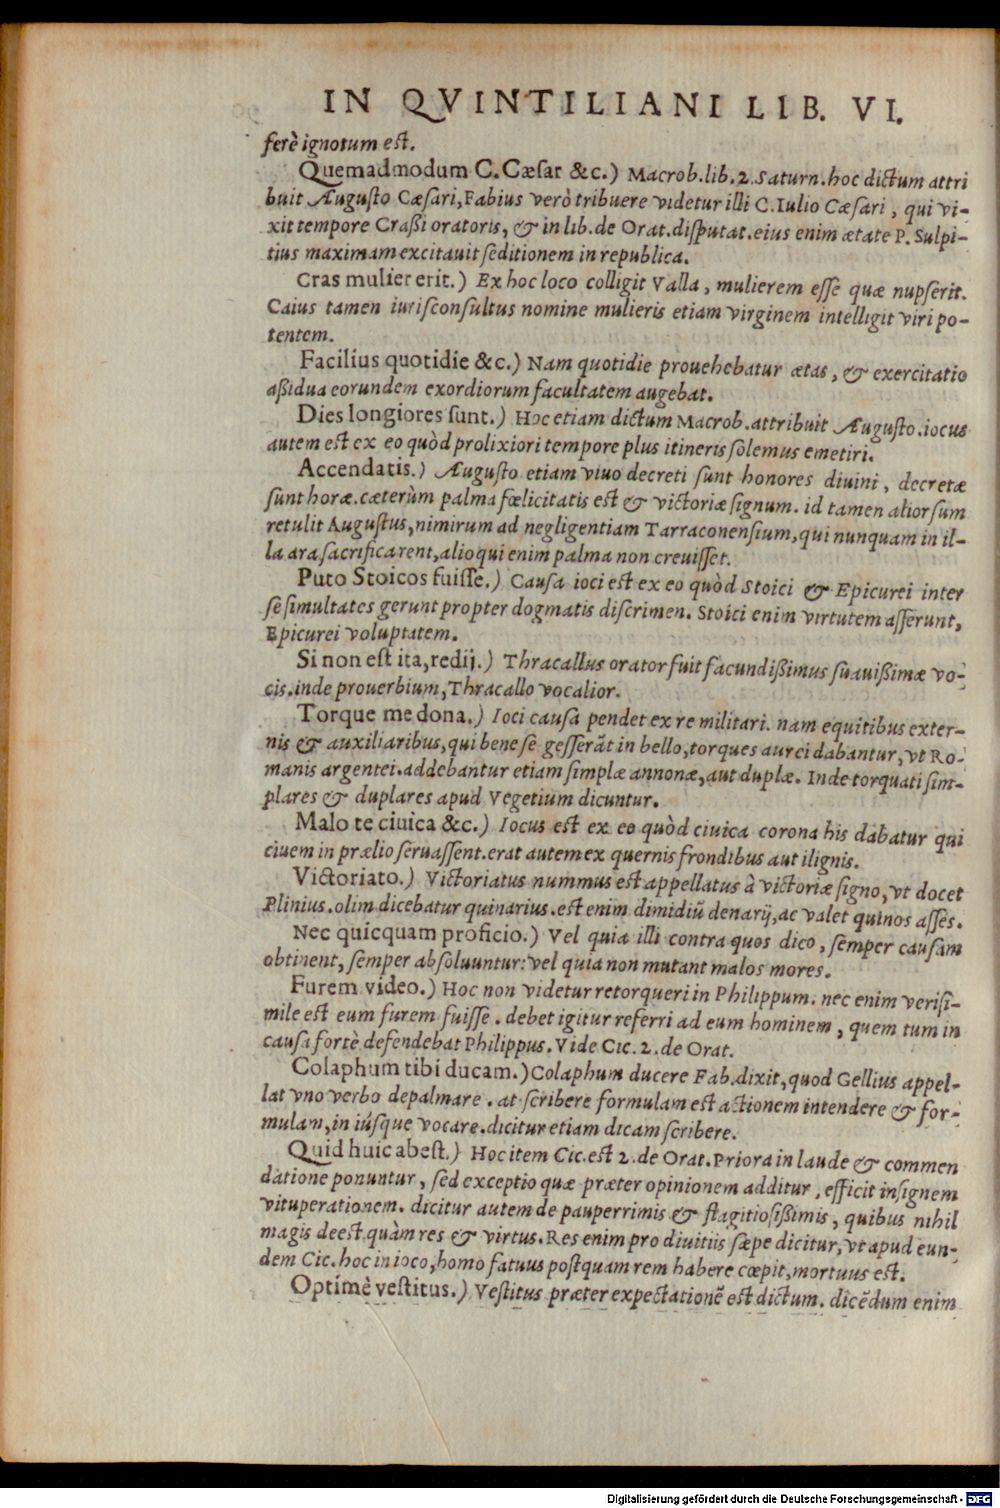 IN QVINTILIANI LIB. VI.
ferè ignotum est.
Quemadmodum C. Cæsar &c.) Macrob. lib. 2. Saturn. hoc dictum attri
buit Augusto Cæsari, Fabius verò tribuere videtur illi C. Iulio Cæsari, qui vi-
xit tempore Crassi oratoris, & in lib. de Orat. disputat. eius enim ætate P. Sulpi-
tius maximam excitauit seditionem in republica.
Cras mulier erit.) Ex hoc loco colligit Valla, mulierem esse quæ nupserit.
Caius tamen iurisconsultus nomine mulieris etiam virginem intelligit viri po-
tentem.
Facilius quotidie &c.) Nam quotidie prouehebatur ætas, & exercitatio
assidua eorundem exordiorum facultatem augebat.
Dies longiores sunt.) Hoc etiam dictum Macrob. attribuit Augusto. iocus
autem est ex eo quòd prolixiori tempore plus itineris solemus emetiri.
Accendatis.) Augusto etiam viuo decreti sunt honores diuini, decretæ
sunt horæ. cæterùm palma fœlicitatis est & victoriæ signum. id tamen aliorsum
retulit Augustus, nimirum ad negligentiam Tarraconensium, qui nunquam in il-
la ara sacrificarent, alioqui enim palma non creuisset.
Puto Stoicos fuisse.) Causa ioci est ex eo quòd Stoici & Epicurei inter
se simultates gerunt propter dogmatis discrimen. Stoici enim virtutem asserunt,
Epicurei voluptatem.
Si non est ita, redij.) Thracallus orator fuit facundissimus suauissimæ vo-
cis. inde prouerbium, Thracallo vocalior.
Torque me dona.) Ioci causa pendet ex re militari. nam equitibus exter-
nis & auxiliaribus, qui bene se gesserãt in bello, torques aurei dabantur, vt Ro-
manis argentei. addebantur etiam simplæ annonæ, aut duplæ. Inde torquati sim-
plares & duplares apud Vegetium dicuntur.
Malo te ciuica &c.) Iocus est ex eo quòd ciuica corona his dabatur qui
ciuem in prælio seruassent. erat autem ex quernis frondibus aut ilignis.
Victoriato.) Victoriatus nummus est appellatus à victoriæ signo, vt docet
Plinius. olim dicebatur quinarius. est enim dimidiũ denarij, ac valet quinos asses.
Nec quicquam proficio.) Vel quia illi contra quos dico, semper causam
obtinent, semper absoluuntur: vel quia non mutant malos mores.
Furem video.) Hoc non videtur retorqueri in Philippum. nec enim verisi-
mile est eum furem fuisse. debet igitur referri ad eum hominem, quem tum in
causa fortè defendebat Philippus. Vide Cic. 2. de Orat.
Colaphum tibi ducam.) Colaphum ducere Fab. dixit, quod Gellius appel-
lat vno verbo depalmare. at scribere formulam est actionem intendere & for-
mulam, in iúsque vocare. dicitur etiam dicam scribere.
Quid huic abest.) Hoc item Cic. est 2. de Orat. Priora in laude & commen
datione ponuntur, sed exceptio quæ præter opinionem additur, efficit insignem
vituperationem. dicitur autem de pauperrimis & flagitiosissimis, quibus nihil
magis deest quàm res & virtus. Res enim pro diuitiis sæpe dicitur, vt apud eun-
dem Cic. hoc in ioco, homo fatuus postquam rem habere cœpit, mortuus est.
Optimè vestitus.) Vestitus præter expectationẽ est dictum. dicẽdum enim
Digitalisierung gefördert durch die Deutsche Forschungsgemeinschaft - DFG